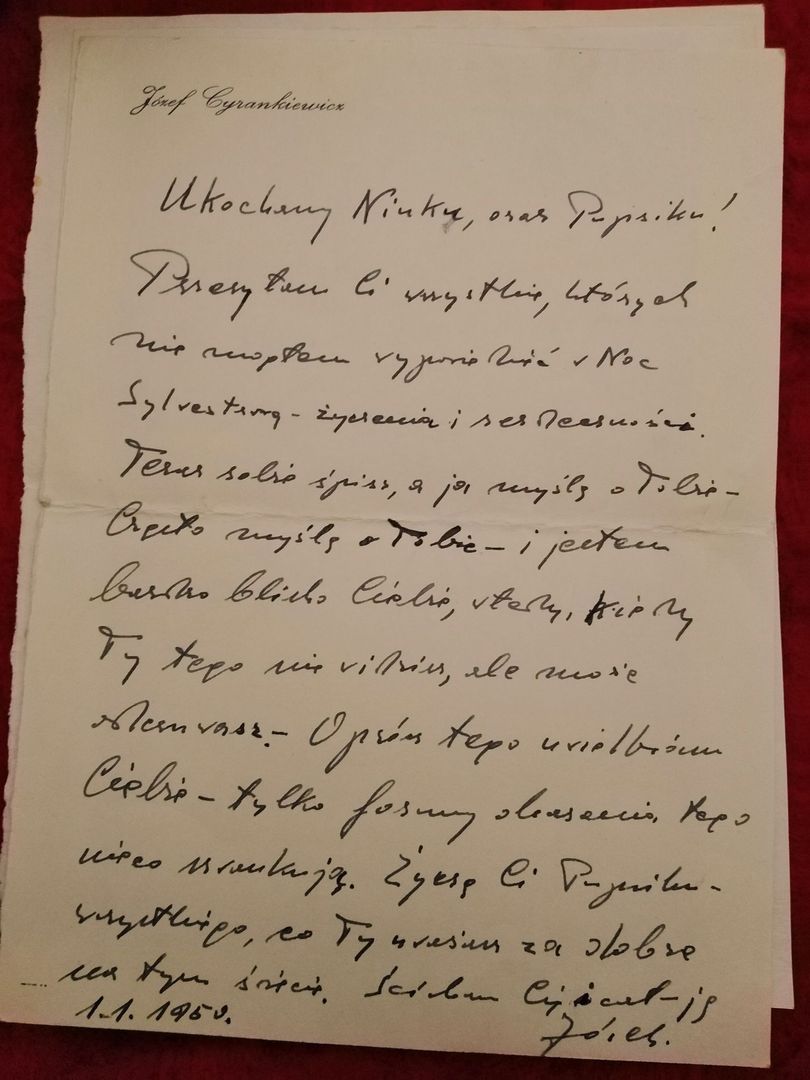 Józef Cyrankiewicz
Ukochany Ninku, oraz Pupsiku!
Przesyłam Ci wszystkie, których
nie mogłem wypowiedzieć w Noc
Sylvestrową - życzenia i serdeczności.
Teraz sobie śpisz, a ja myślę o Tobie -
Często myślę o Tobie - i jestem
bardzo blisko Ciebie, wtedy, kiedy
Ty tego nie widzisz, ale może
odczuwasz. - Oprócz tego uwielbiam
Ciebie - tylko formy okazania tego
nieco szwankują. Życzę Ci Pupsiku -
wszystkiego, co Ty uważasz za dobre
na tym świecie. Ściskam Cię i cał-ję
1.1.1950. Józek.